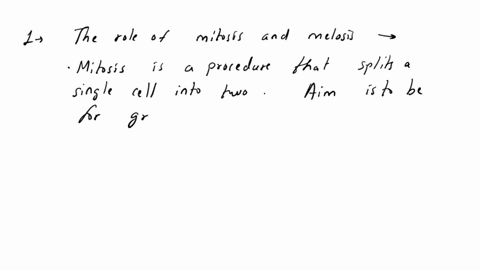 1→ The role of mitosis and meiosis →
· Mitosis is a procedure that splits a
single cell into two. Aim is to be
for gr